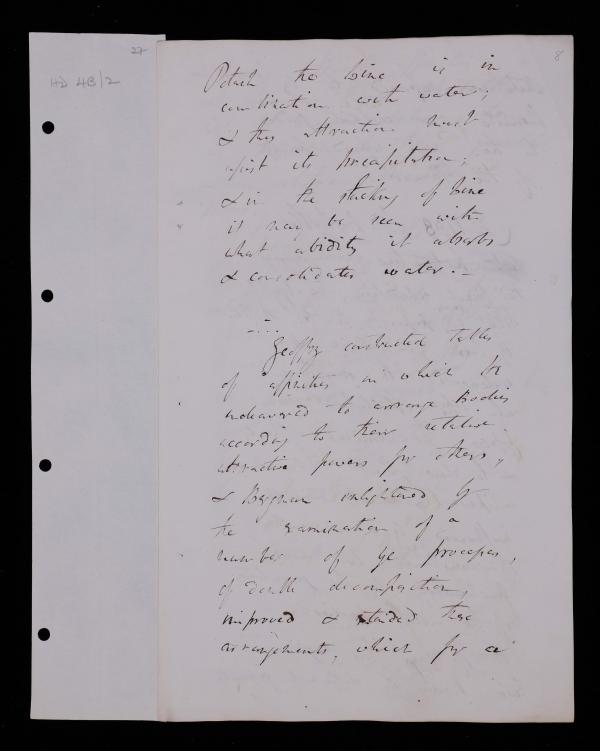 27
8
HD 4B/2
Potash the lime is in
combination with water;
& this attraction must
assist its precipitation;
& in the slacking of lime
it may be seen with
what avidity it absorbs
& consolidates water. —
Geoffroy constructed tables
of affinities in which he
endeavored to arrange Bodies
according to their relative
attractive powers for others,
& Bergman enlightened by
the examination of a
number of ye processes,
of double decomposition,
improved & extended these
arrangements, which for a